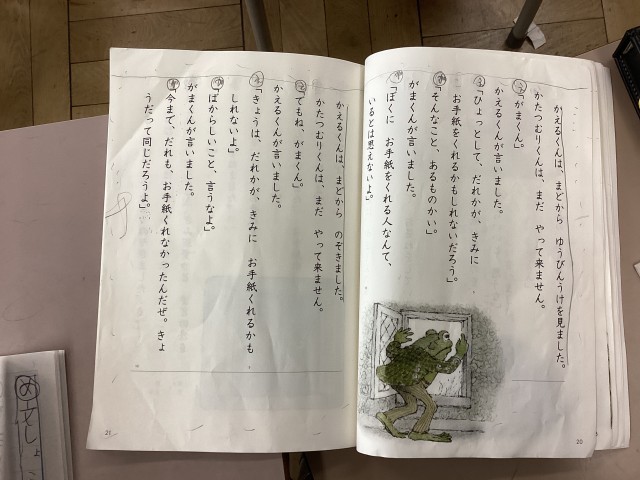 かえるくんは、まどから ゆうびんうけを見ました。
かたつむりくんは、まだ やって来ません。
「がまくん。」
かえるくんが言いました。
「ひょっとして、だれかが、きみに
お手紙をくれるかもしれないだろう。」
「そんなこと、あるものかい。」
がまくんが言いました。
「ぼくに お手紙をくれる人なんて、
いるとは思えないよ。」
20
かえるくんは、まどから のぞきました。
かたつむりくんは、まだ やって来ません。
「でもね、がまくん。」
かえるくんが言いました。
「きょうは、だれかが、きみに お手紙くれるかも
しれないよ。」
「ばからしいこと、言うなよ。」
がまくんが言いました。
「今まで、だれも、お手紙くれなかったんだぜ。きょ
うだって同じだろうよ。」
21